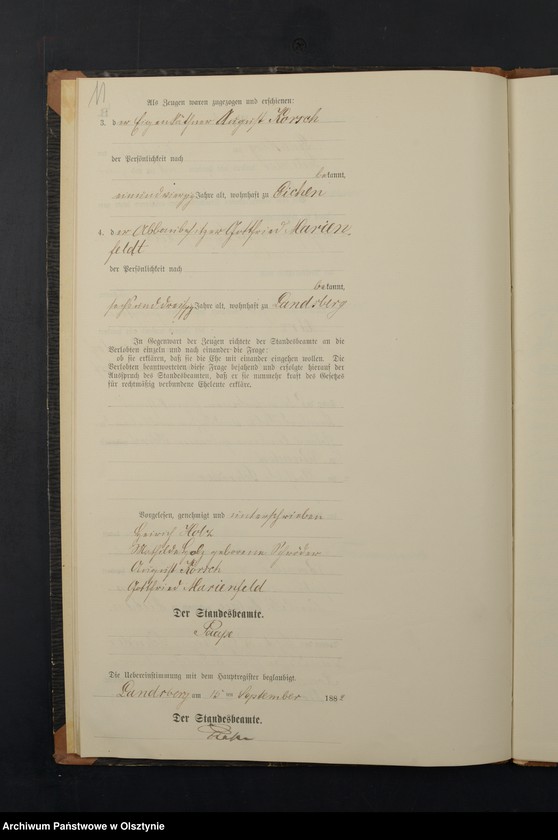 11
Als Zeugen waren zugezogen und erschienen:
3. der Eigenkäthner August Korsch
der Persönlichkeit nach
bekannt,
einundvierzig Jahre alt, wohnhaft zu Eichen
4. der Abbaubesitzer Gottfried Marien-
feldt
der Persönlichkeit nach
bekannt,
sechsunddreißig Jahre alt, wohnhaft zu Landsberg
In Gegenwart der Zeugen richtete der Standesbeamte an die
Verlobten einzeln und nach einander die Frage:
ob sie erklären, daß sie die Ehe mit einander eingehen wollen. Die
Verlobten beantworteten diese Frage bejahend und erfolgte hierauf der
Ausspruch des Standesbeamten, daß er sie nunmehr kraft des Gesetzes
für rechtmäßig verbundene Eheleute erkläre.
Vorgelesen, genehmigt und unterschrieben
Heinrich Holz
Mathilde Holz geborene Schröder
August Korsch
Gottfried Marienfeld
Der Standesbeamte.
Die Uebereinstimmung mit dem Hauptregister beglaubigt.
Landsberg am 15ten September 1882
Der Standesbeamte.
Archiwum Państwowe w Olsztynie